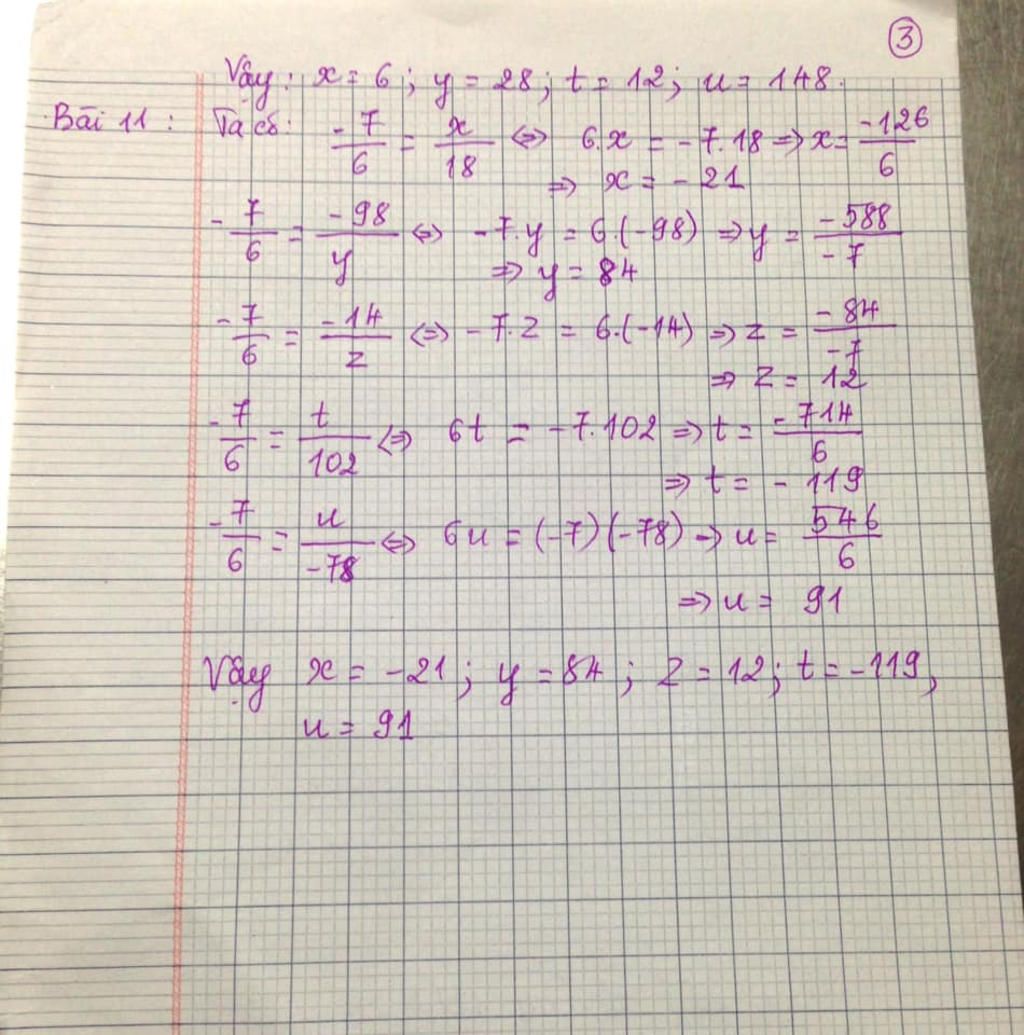 ③
Vậy: x = 6; y = 28; t = 12; u = 148.
Bài 11: Ta có: -7/6 = x/18 ⇔ 6.x = -7.18 ⇒ x = -126/6
⇒ x = -21
-7/6 = -98/y ⇔ -7.y = 6.(-98) ⇒ y = -588/-7
⇒ y = 84
-7/6 = -14/z ⇔ -7.z = 6.(-14) ⇒ z = -84/-7
⇒ z = 12
-7/6 = t/102 ⇔ 6t = -7.102 ⇒ t = -714/6
⇒ t = -119
-7/6 = u/-78 ⇔ 6u = (-7)(-78) → u = 546/6
⇒ u = 91
Vậy x = -21; y = 84; z = 12; t = -119,
u = 91